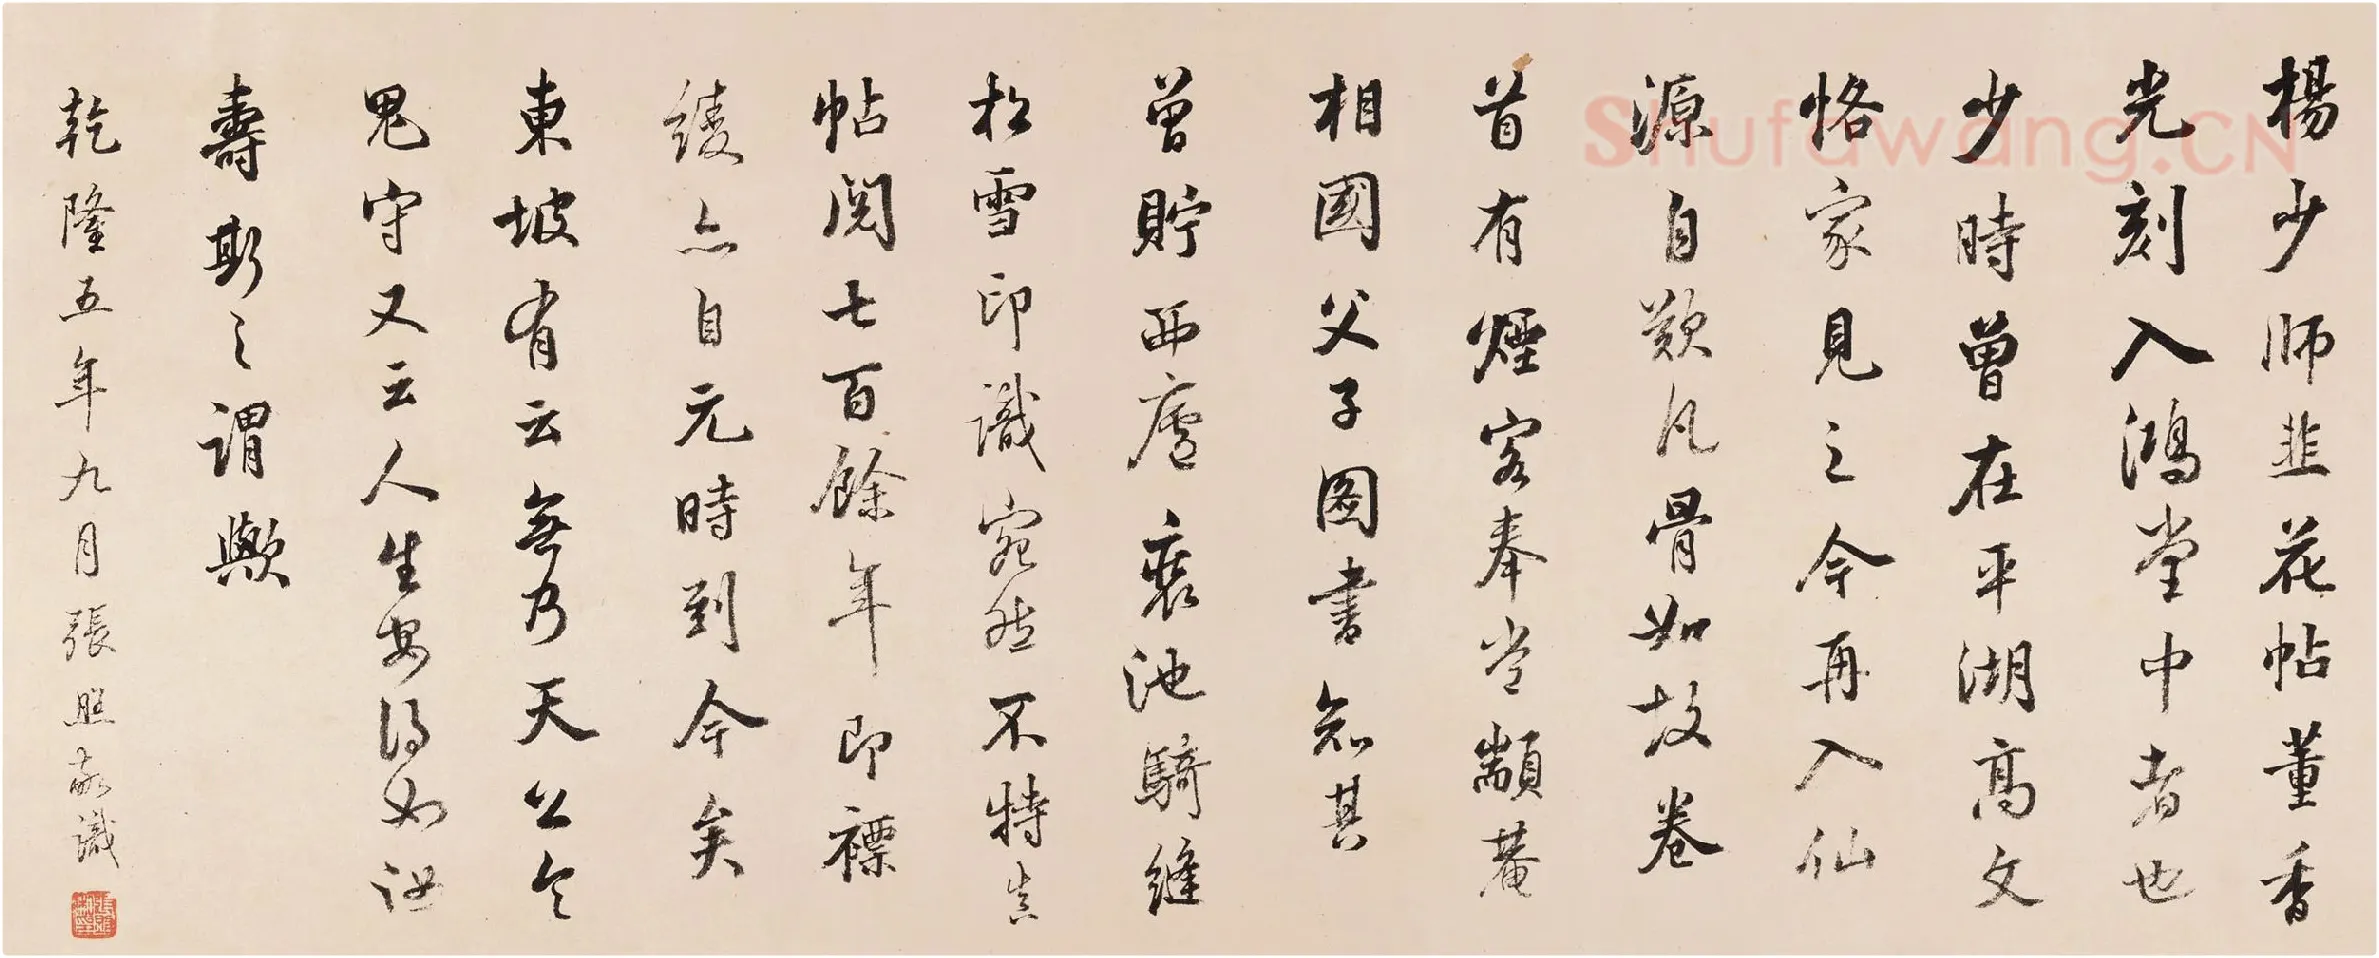 楊少師韭花帖董香
光刻入鴻堂中者也
少時曾在平湖高文
恪家見之今再入仙
源自歎凡骨如故卷
首有煙客奉常顓菴
相國父子圖書知其
曾貯西廬裏池騎縫
松雪印識宛然不特真
帖閱七百餘年即褾
綾亦自元時到今矣
東坡有云無乃天公令
鬼守又云人生安得如汝
壽斯之謂歟
乾隆五年九月張照敬識
Shufawang.CN